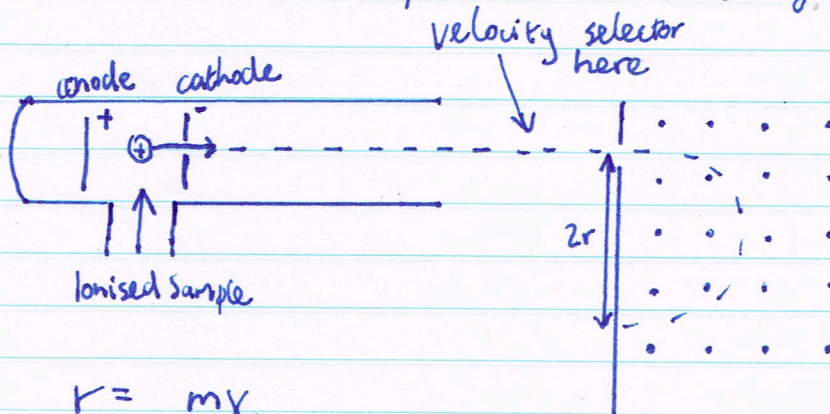 velocity selector
here
anode cathode
+ -
+
2r
Ionised Sample
r = mv